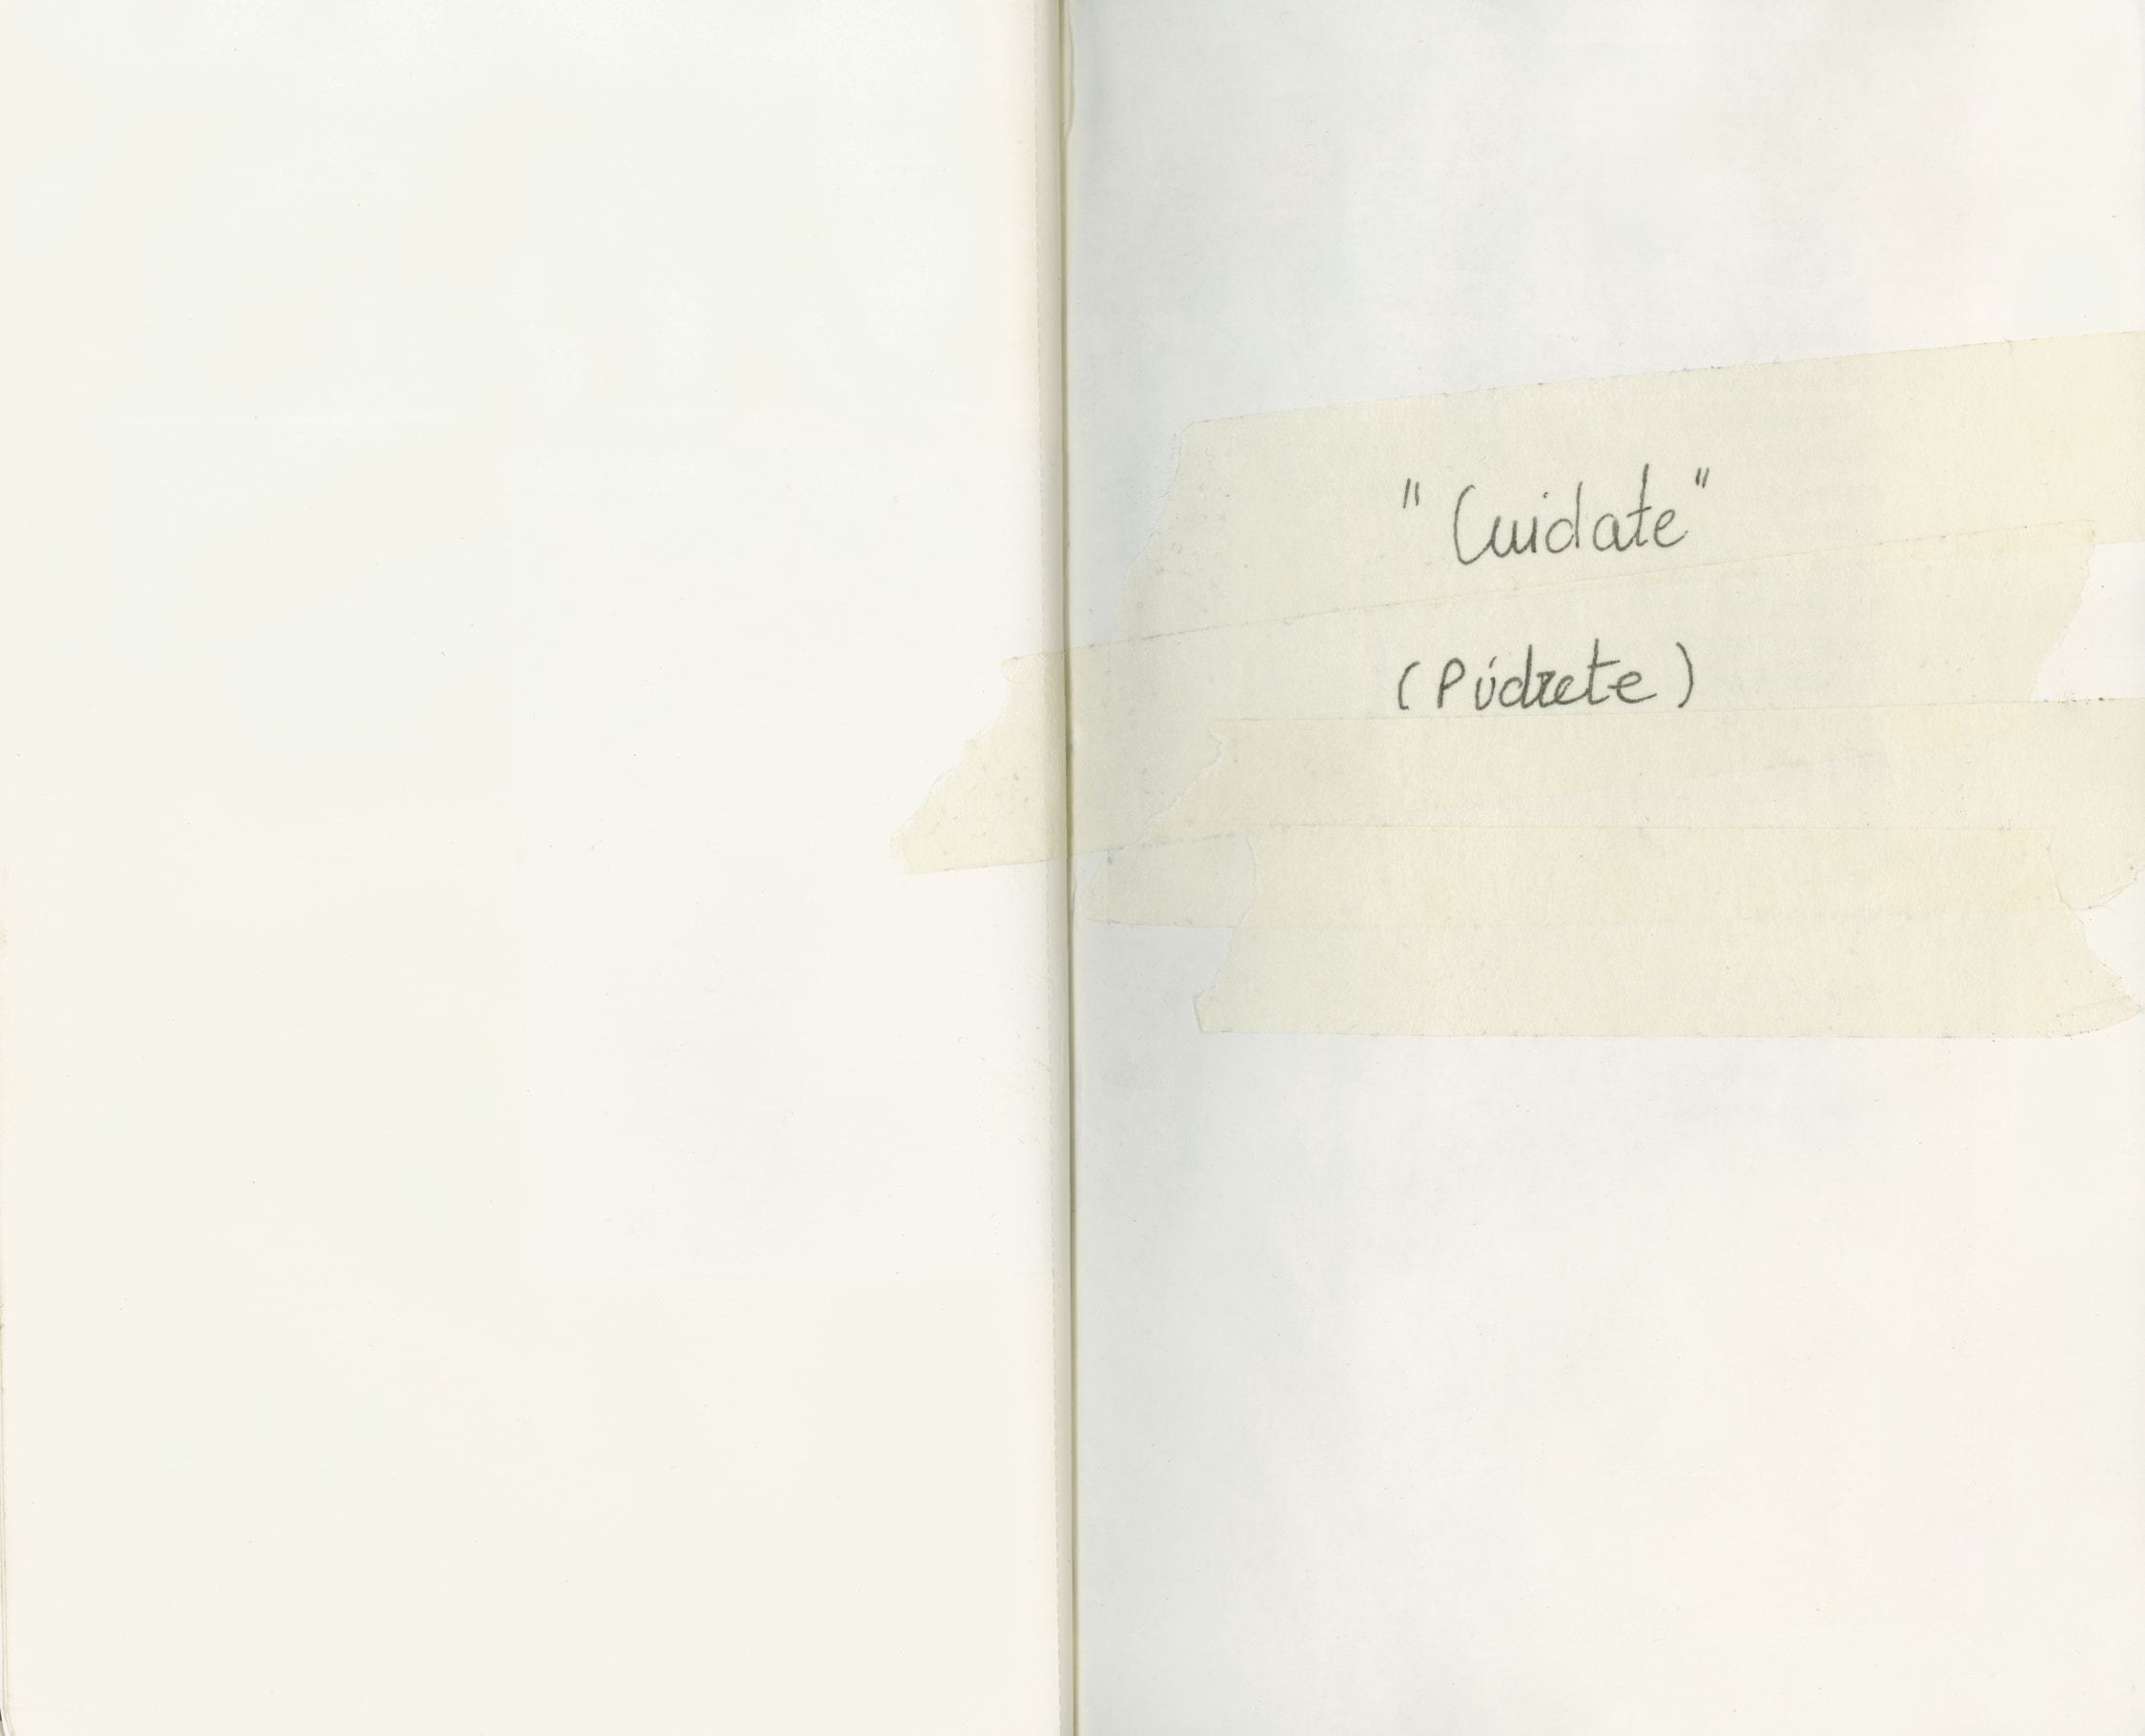 "Cuidate"
(Púdrete)